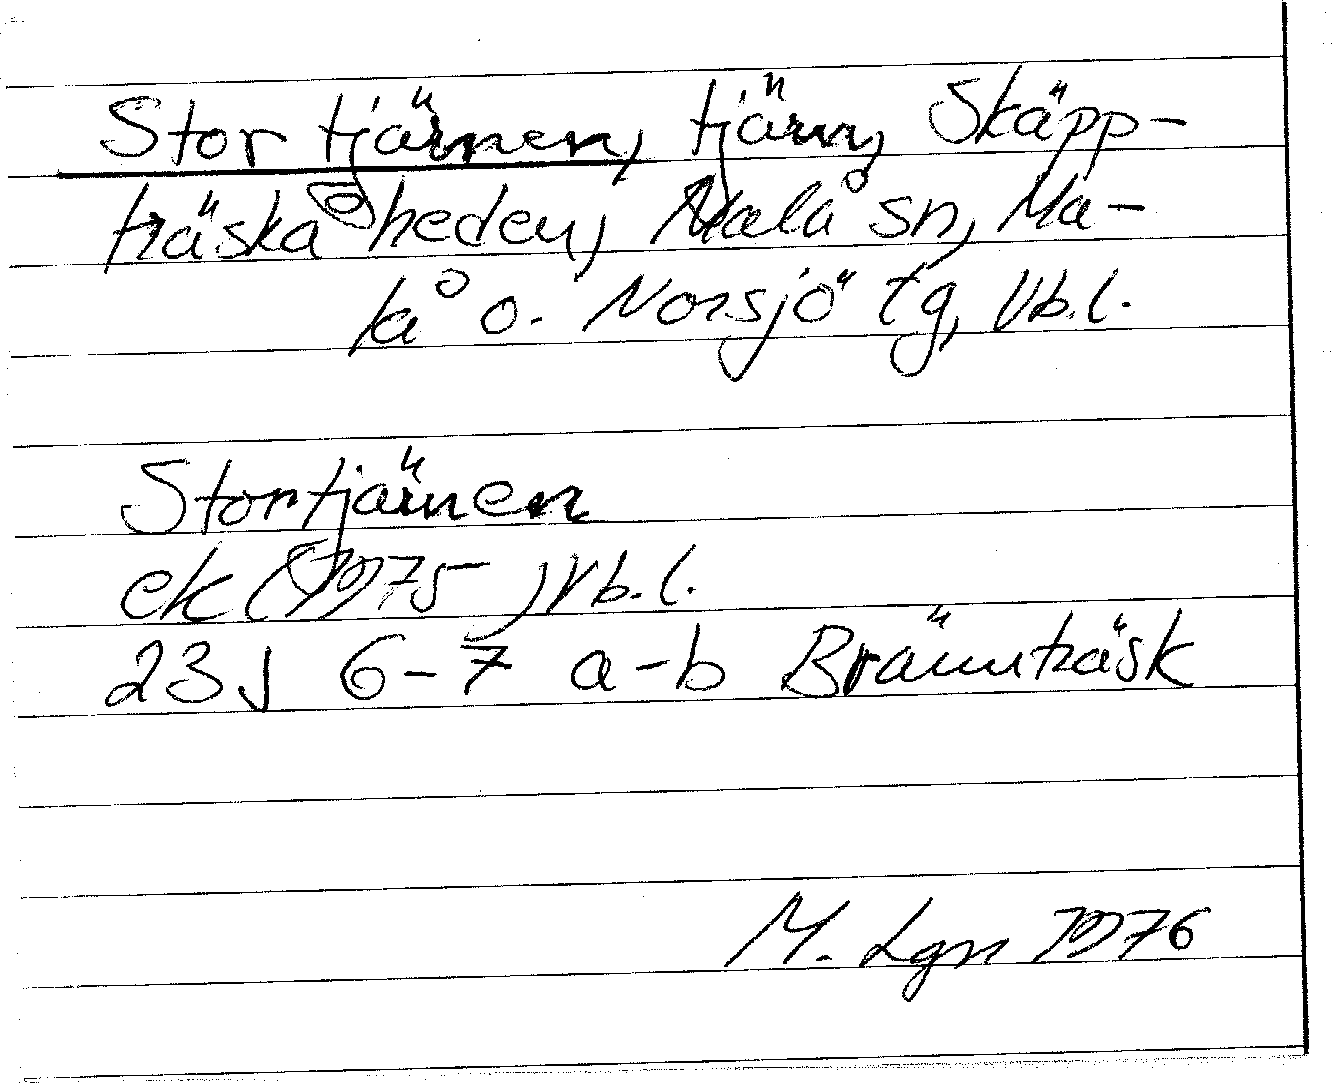 Stortjärnen, tjärn, Skäpp-
träskåheden, Malå sn, Ma-
lå o. Norsjö tg, Vb.l.
Stortjärnen
ek (1975) Vb.l.
23J 6-7 a-b Brännträsk
M. Lgn 1976